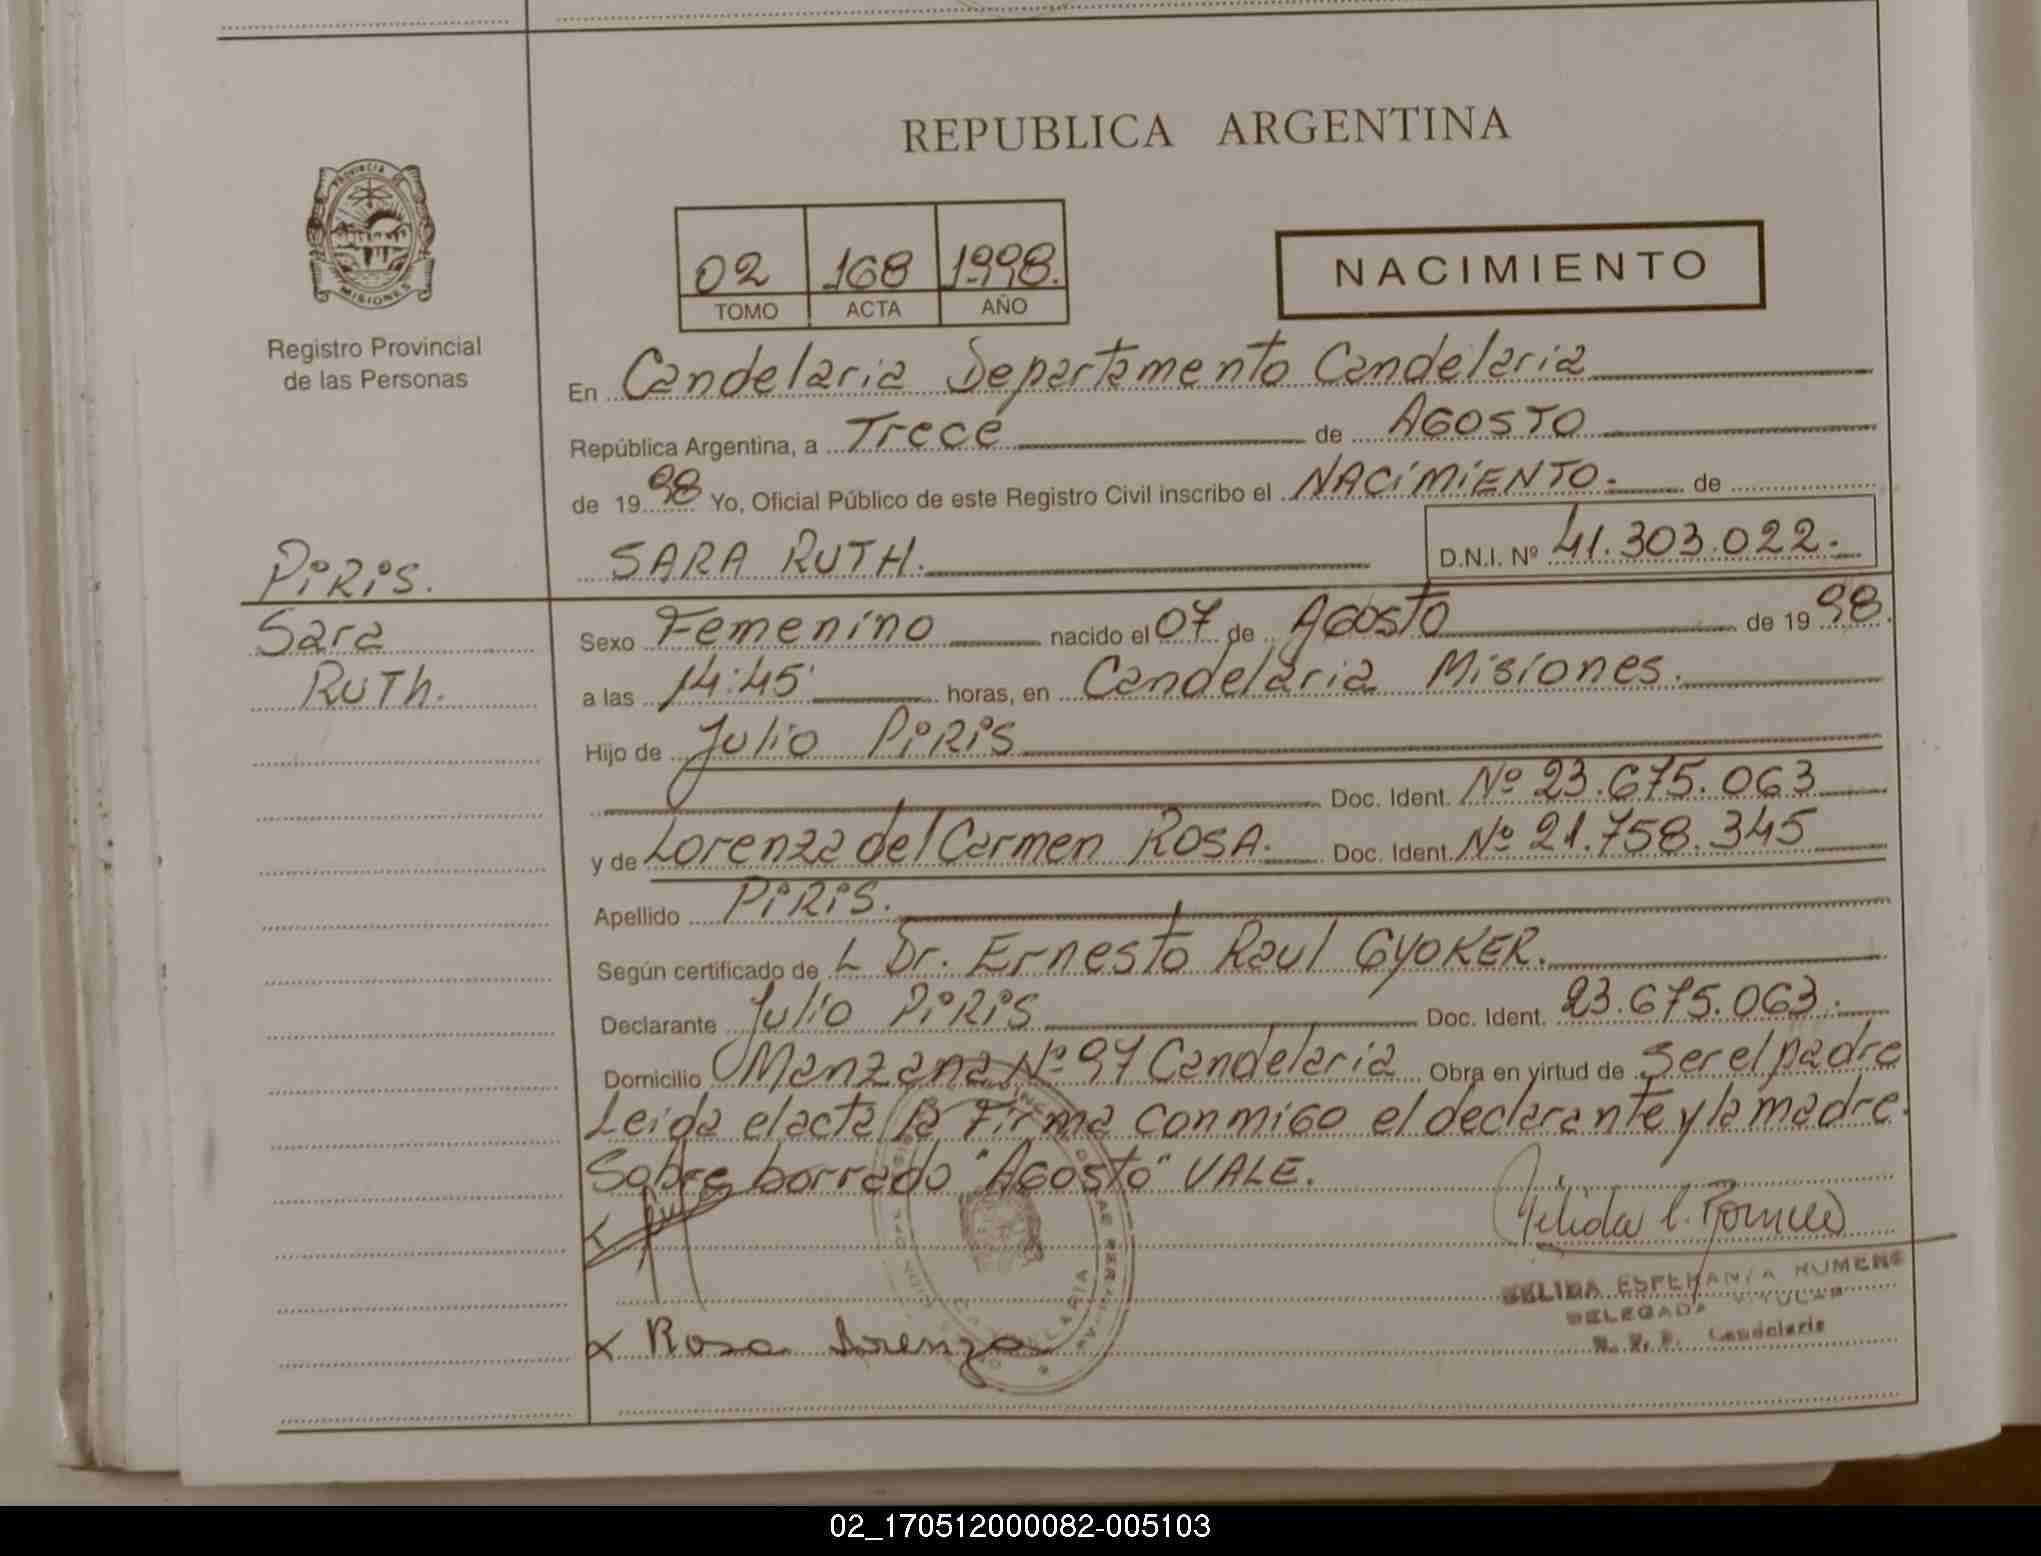 REPUBLICA ARGENTINA
PROVINCIA DE MISIONES
Registro Provincial
de las Personas
02 168 1998.
TOMO ACTA AÑO
NACIMIENTO
En Candelaria Departamento Candelaria
República Argentina, a Trece de AGOSTO
de 1998 Yo, Oficial Público de este Registro Civil inscribo el NACIMIENTO.- de
SARA RUTH. D.N.I. Nº 41.303.022.-
PIRIS.
Sara
RUTh.
Sexo Femenino nacido el 07 de AGOSTO de 1998.
a las 14:45 horas, en Candelaria Misiones.
Hijo de Julio PIRIS
Doc. Ident. Nº 23.675.063
y de Lorenza del Carmen ROSA. Doc. Ident. Nº 21.758.345
Apellido PIRIS.
Según certificado de L Dr. Ernesto Raul GYOKER.
Declarante Julio PIRIS Doc. Ident. 23.675.063.-
Domicilio Manzana Nº 97 Candelaria Obra en virtud de ser el padre
Leida el acta la Firma conmigo el declarante y la madre.
Sobre borrado "AGOSTO" VALE.
x Rosa Lorenza
ESPERANZA ROMERO
DELEGADA TITULAR
Candelaria
CANDELARIA
02_170512000082-005103